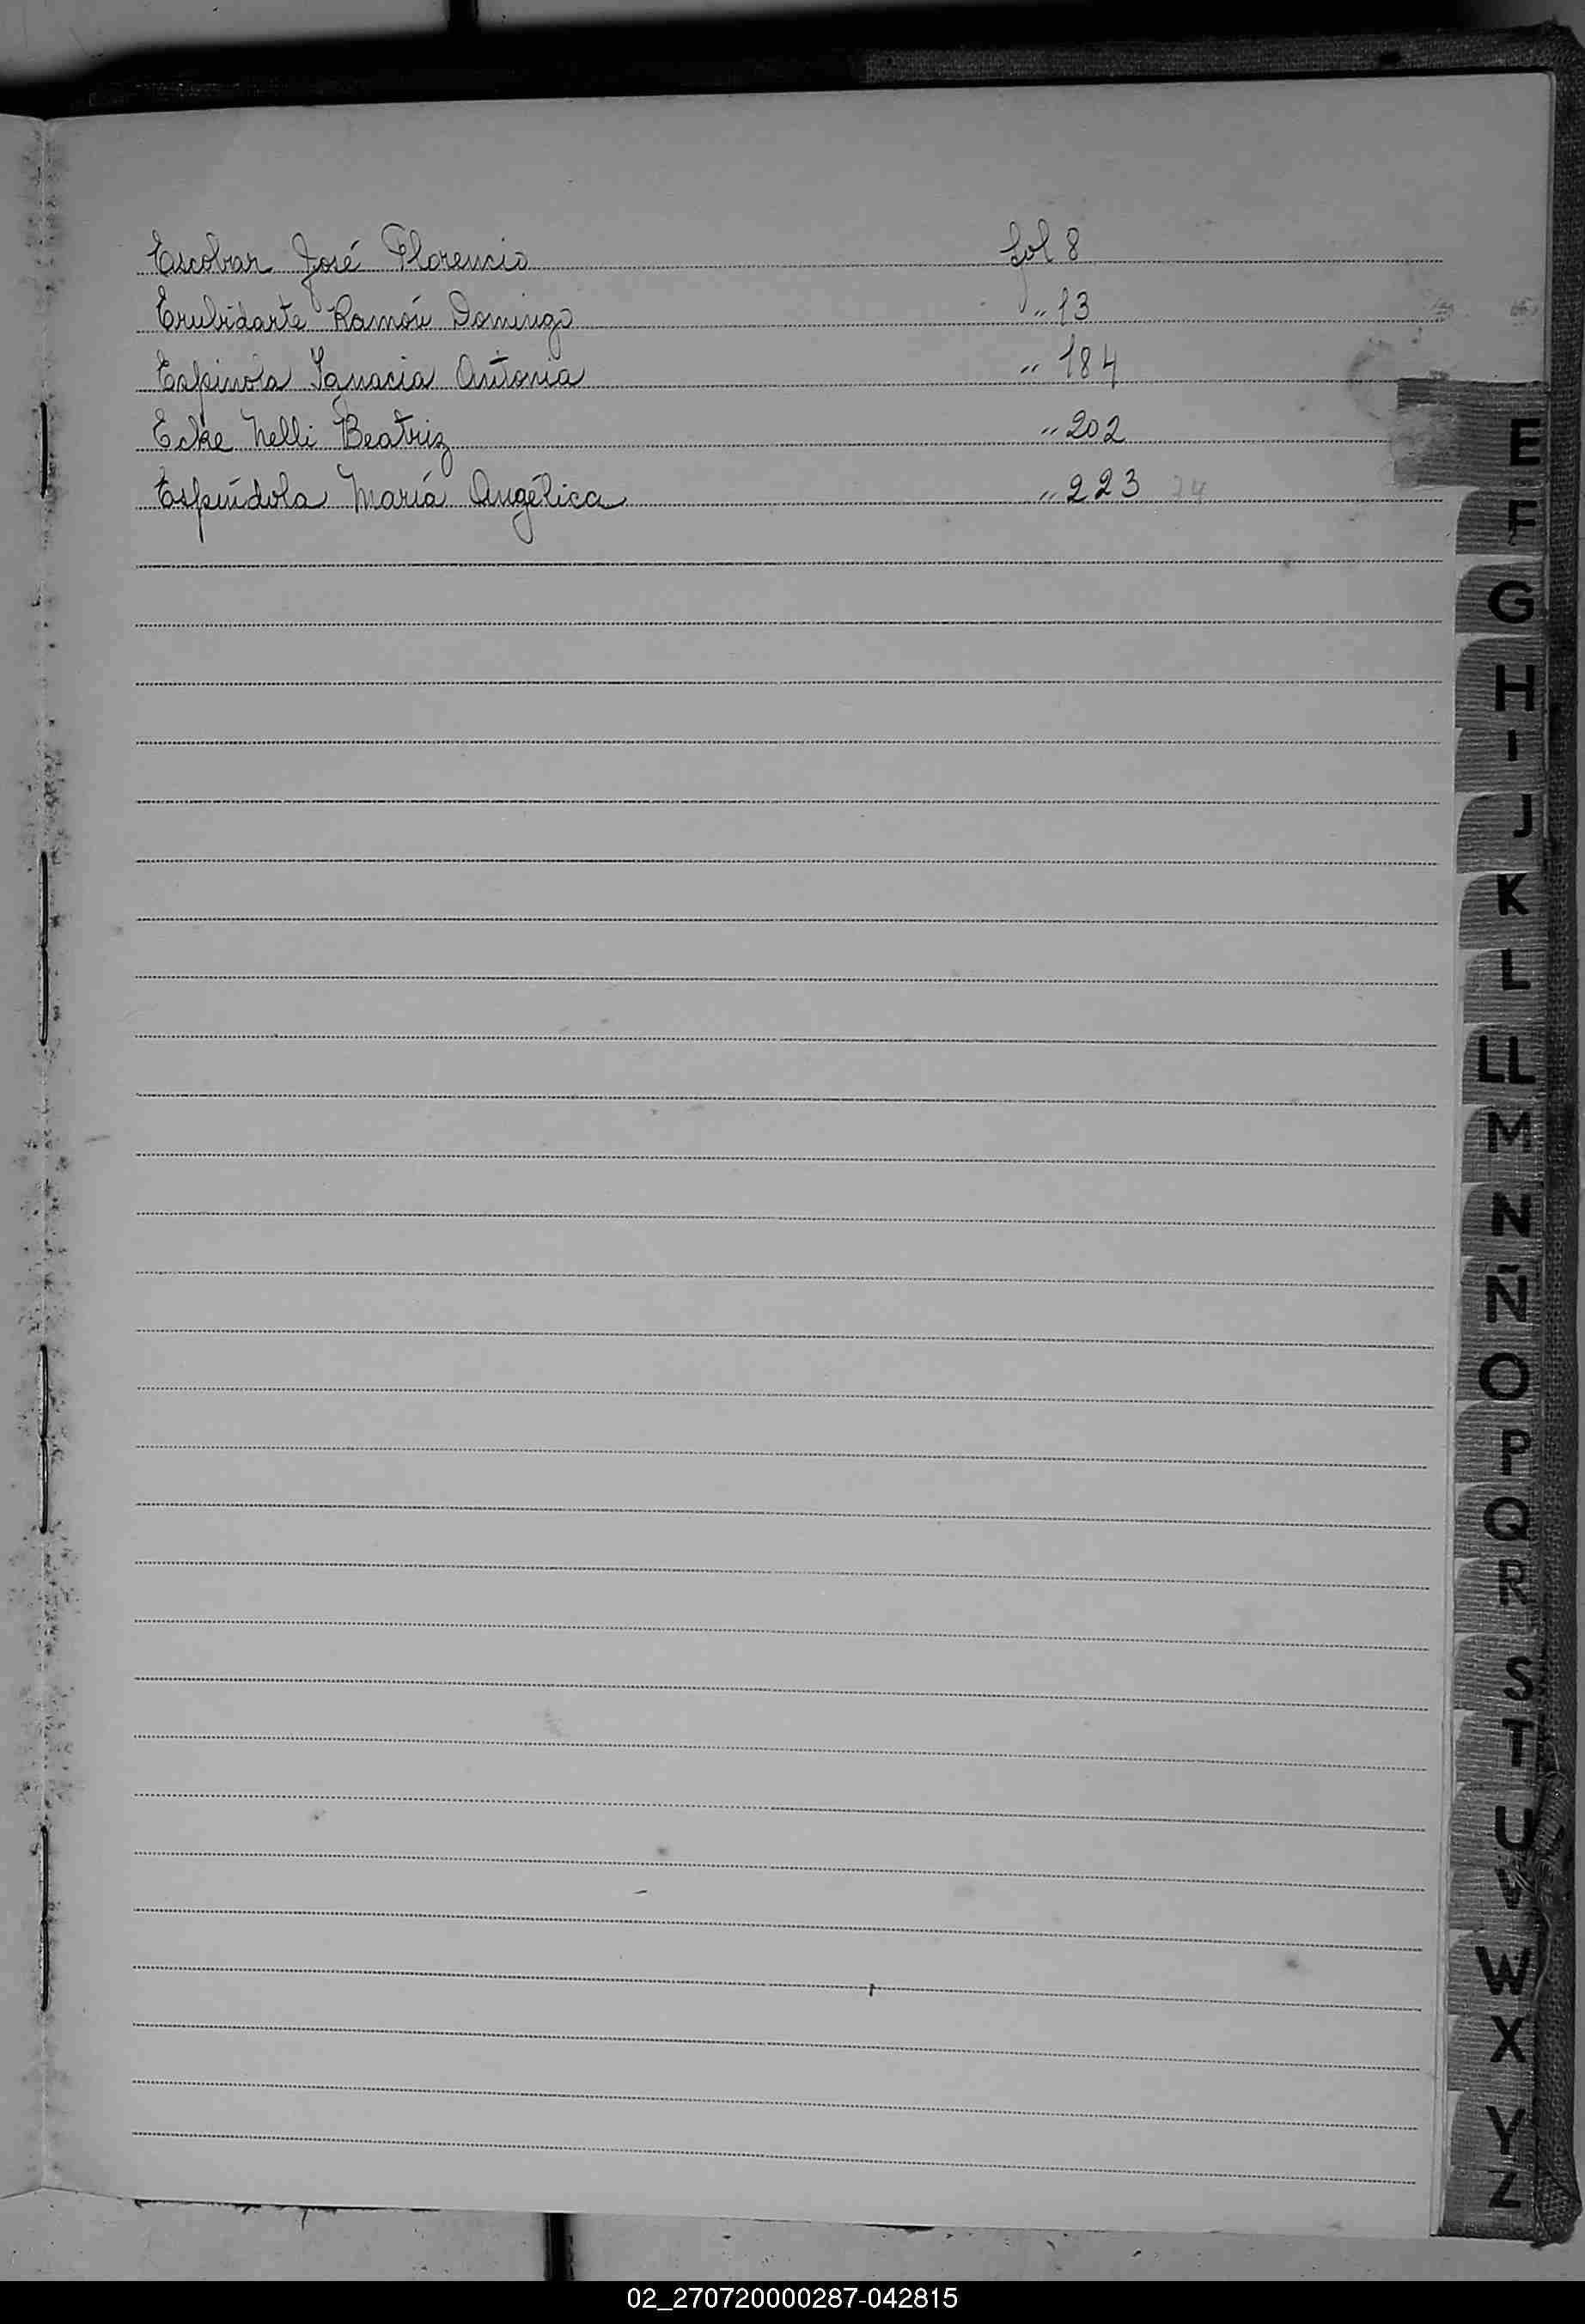 Escobar José Florencio fol 8
Erubidarte Ramón Domingo " 13
Espinola Ignacia Antonia " 184
Ecke Nelli Beatriz " 202
Espíndola María Angélica " 223 24
E
F
G
H
I
J
K
L
LL
M
N
Ñ
O
P
Q
R
S
T
U
V
W
X
Y
Z
02_270720000287-042815